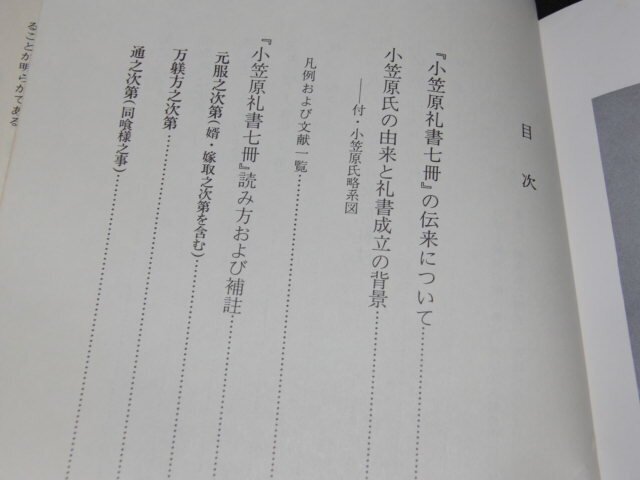 目次
『小笠原礼書七冊』の伝来について
小笠原氏の由来と礼書成立の背景
――付・小笠原氏略系図
凡例および文献一覧
『小笠原礼書七冊』読み方および補註
元服之次第（婿・嫁取之次第を含む）
万躾方之次第
通之次第（同喰様之事）
ることが明らかである